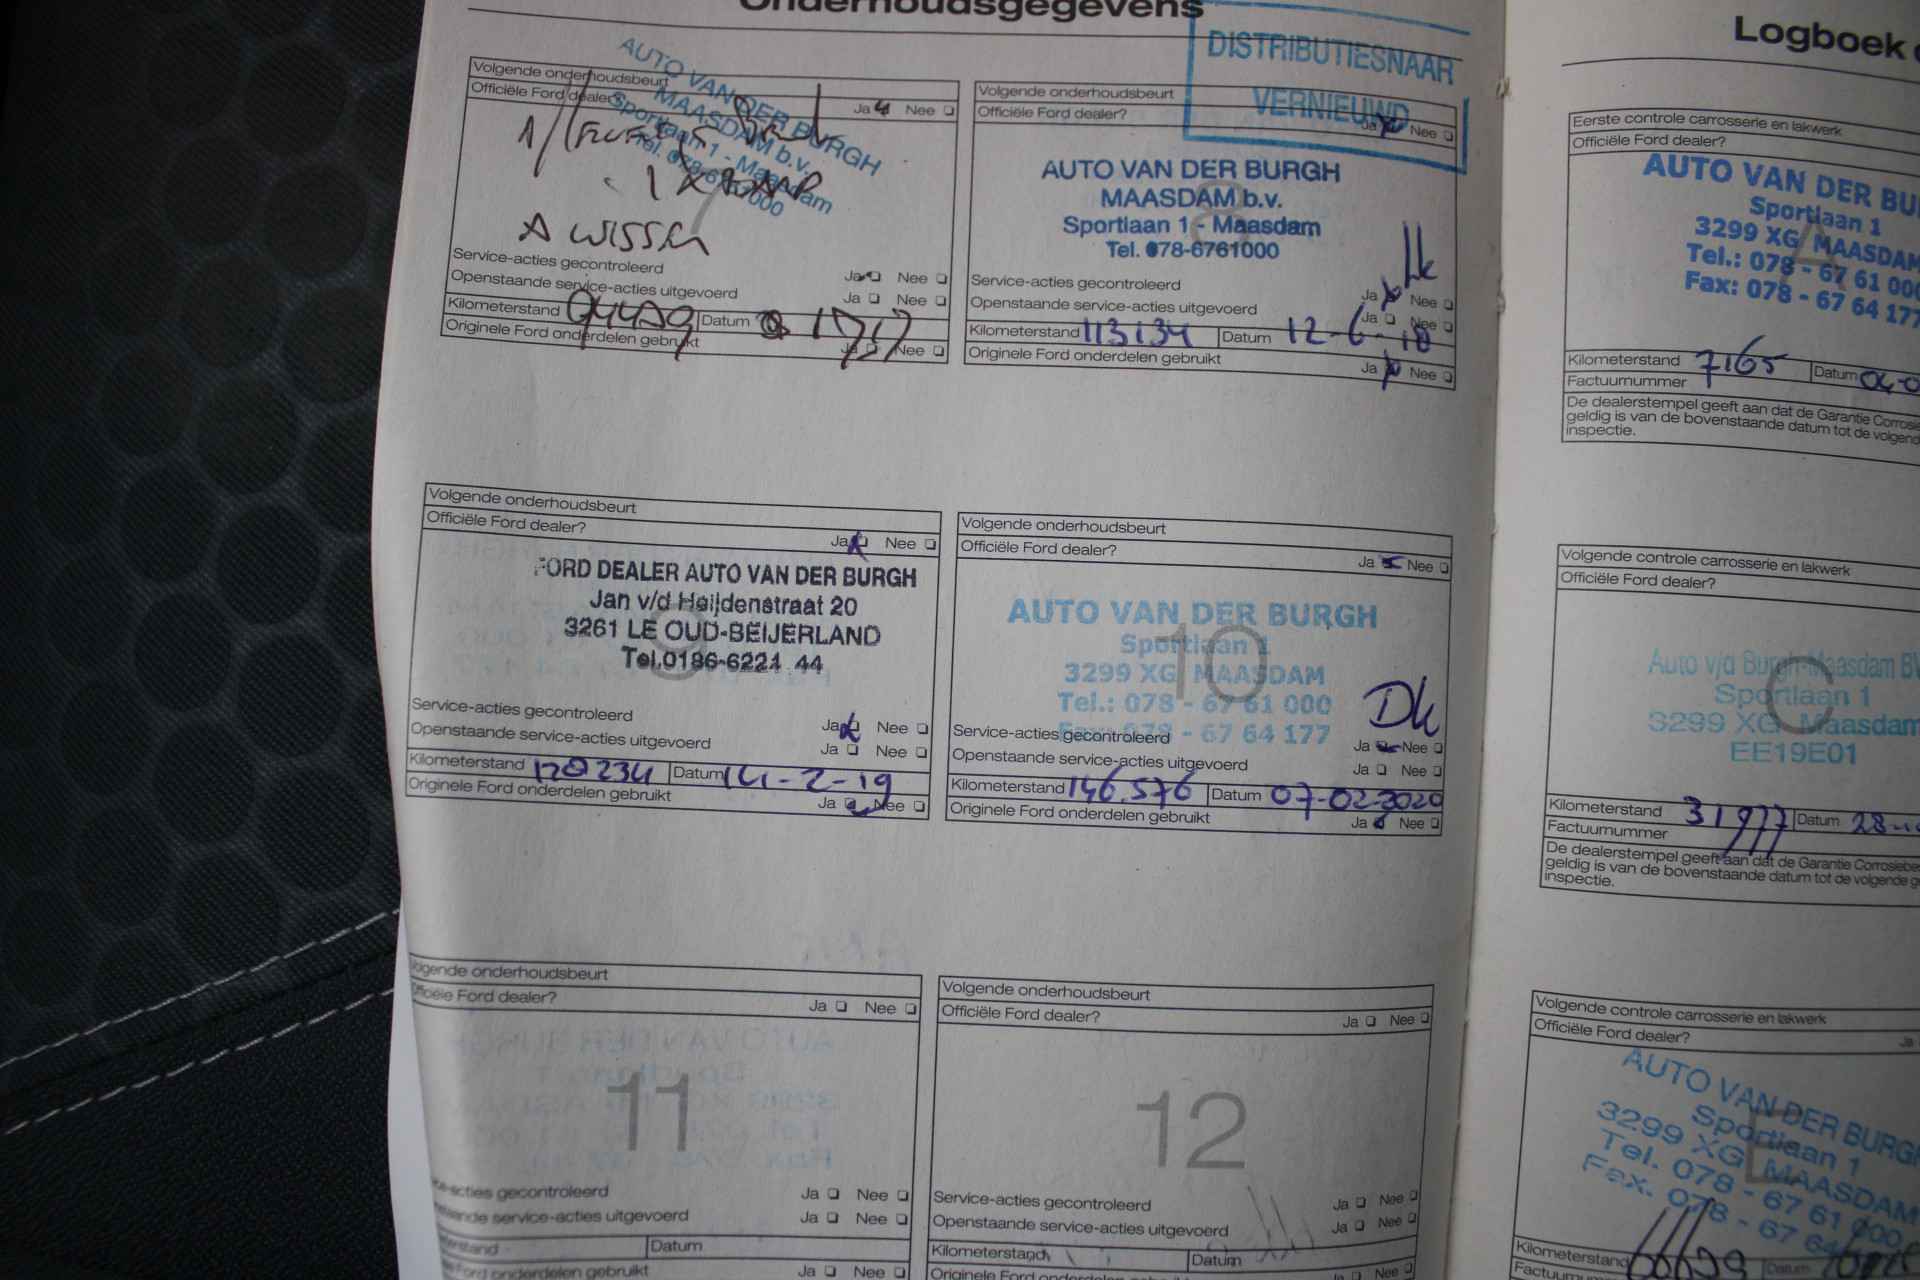 Onderhoudsgegevens
Volgende onderhoudsbeurt
Officiële Ford dealer?
Ja Nee
AUTO VAN DER BURGH
MAASDAM b.v.
Sportlaan 1 - Maasdam
Tel. 078-6761000
7
A WISSEN
Service-acties gecontroleerd
Ja Nee
Openstaande service-acties uitgevoerd
Ja Nee
Kilometerstand
Datum
Originele Ford onderdelen gebruikt
Ja Nee
DISTRIBUTIESNAAR
VERNIEUWD
Volgende onderhoudsbeurt
Officiële Ford dealer?
Ja Nee
AUTO VAN DER BURGH
MAASDAM b.v.
Sportlaan 1 - Maasdam
Tel. 078-6761000
8
Service-acties gecontroleerd
Ja Nee
Openstaande service-acties uitgevoerd
Ja Nee
Kilometerstand 113134 Datum 12-6-18
Originele Ford onderdelen gebruikt
Ja Nee
Volgende onderhoudsbeurt
Officiële Ford dealer?
Ja Nee
FORD DEALER AUTO VAN DER BURGH
Jan v/d Heijdenstraat 20
3261 LE OUD-BEIJERLAND
Tel.0186-6221 44
9
Service-acties gecontroleerd
Ja Nee
Openstaande service-acties uitgevoerd
Ja Nee
Kilometerstand 120234 Datum 14-2-19
Originele Ford onderdelen gebruikt
Ja Nee
Volgende onderhoudsbeurt
Officiële Ford dealer?
Ja Nee
AUTO VAN DER BURGH
Sportlaan 1
3299 XG MAASDAM
Tel.: 078 - 67 61 000
Fax: 078 - 67 64 177
10
Dk
Service-acties gecontroleerd
Ja Nee
Openstaande service-acties uitgevoerd
Ja Nee
Kilometerstand 146.576 Datum 07-02-2020
Originele Ford onderdelen gebruikt
Ja Nee
Volgende onderhoudsbeurt
Officiële Ford dealer?
Ja Nee
11
Service-acties gecontroleerd
Ja Nee
service-acties uitgevoerd
Ja Nee
Datum
Ford onderdelen gebruikt
Ja Nee
Volgende onderhoudsbeurt
Officiële Ford dealer?
Ja Nee
12
Service-acties gecontroleerd
Ja Nee
Openstaande service-acties uitgevoerd
Ja Nee
Kilometerstand Datum
Originele Ford onderdelen gebruikt
Ja Nee
Logboek
Eerste controle carrosserie en lakwerk
Officiële Ford dealer?
AUTO VAN DER BU
Sportlaan 1
3299 XG MAASDAM
Tel.: 078 - 67 61 000
Fax: 078 - 67 64 177
A
Kilometerstand 7165 Datum 04-0
Factuurnummer
De dealerstempel geeft aan dat de Garantie Corrosie
geldig is van de bovenstaande datum tot de volgend
inspectie.
Volgende controle carrosserie en lakwerk
Officiële Ford dealer?
Auto v/d Burgh-Maasdam BV
Sportlaan 1
3299 XG Maasdam
EE19E01
C
Kilometerstand 31977 Datum 28-
Factuurnummer
De dealerstempel geeft aan dat de Garantie Corrosiebe
geldig is van de bovenstaande datum tot de volgende
inspectie.
Volgende controle carrosserie en lakwerk
Officiële Ford dealer?
Ja
AUTO VAN DER BURGH
Sportlaan 1
3299 XG MAASDAM
Tel. 078 - 67 61 000
Fax. 078 - 67 64
E
Kilometerstand Datum